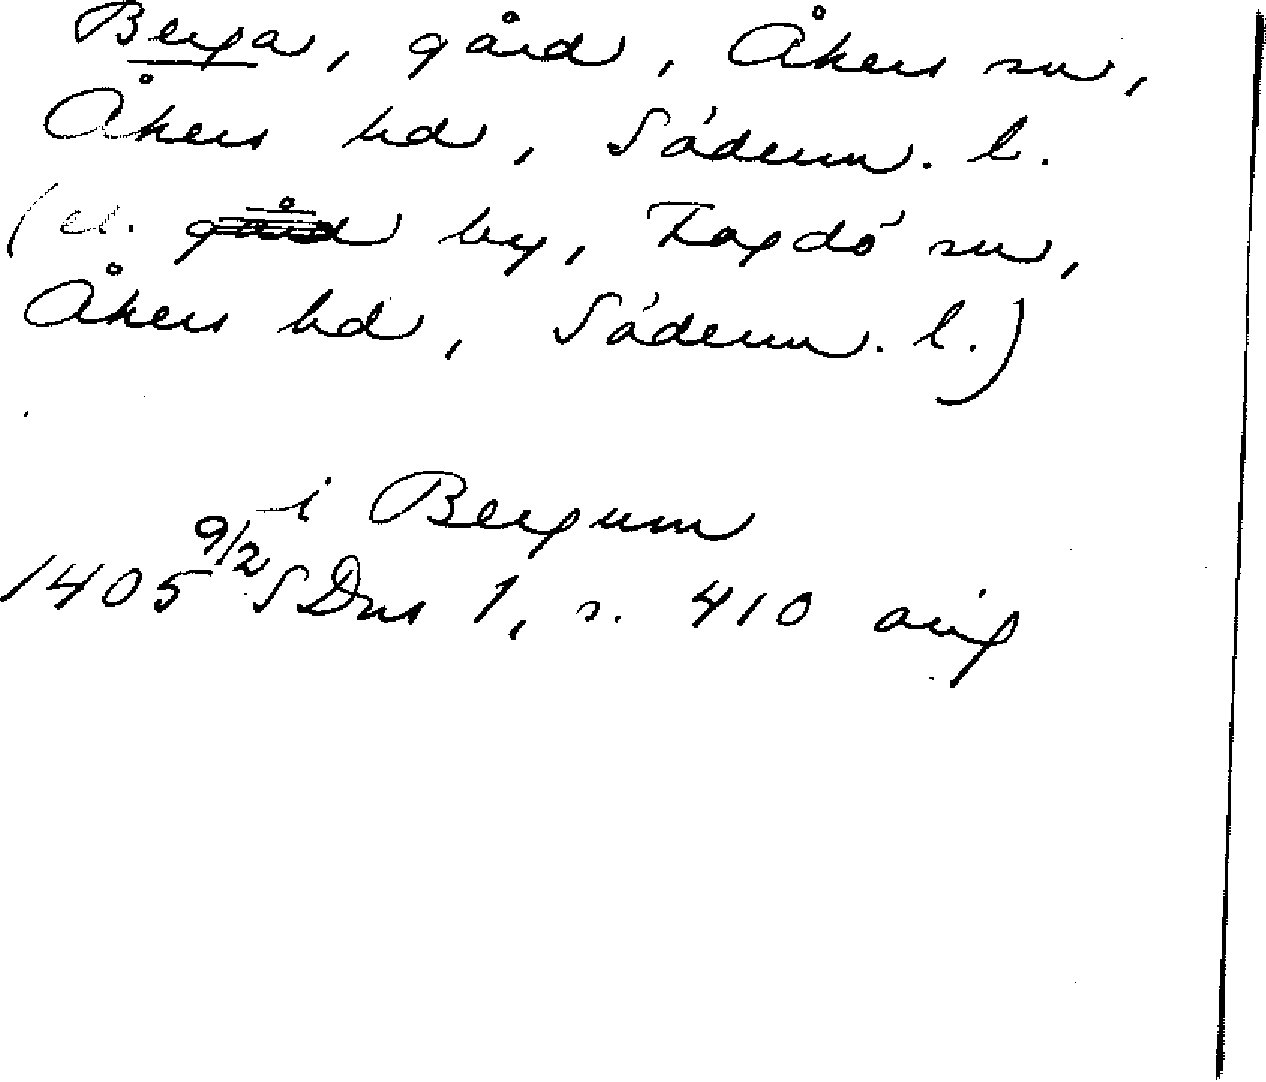 Berga, gård, Åkers sn,
Åkers hd, Söderm. l.
(el. gård by, Togdö sn,
Åkers hd, Söderm. l.)
i Bergum
1405 9/2 SDns 1, s. 410 orig